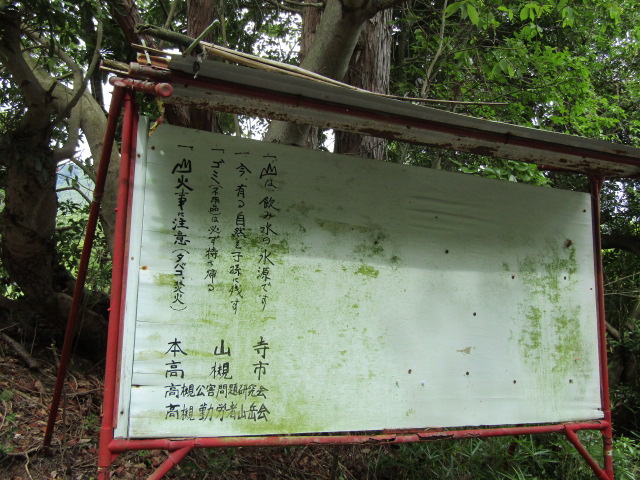 一、山は飲み水の水源です
一、今、有る自然を子孫に残す
一、ゴミ(不用品)は必ず持ち帰る
一、山火事に注意(タバコ、焚火)
本山寺
高槻市
高槻公害問題研究会
高槻勤労者山岳会